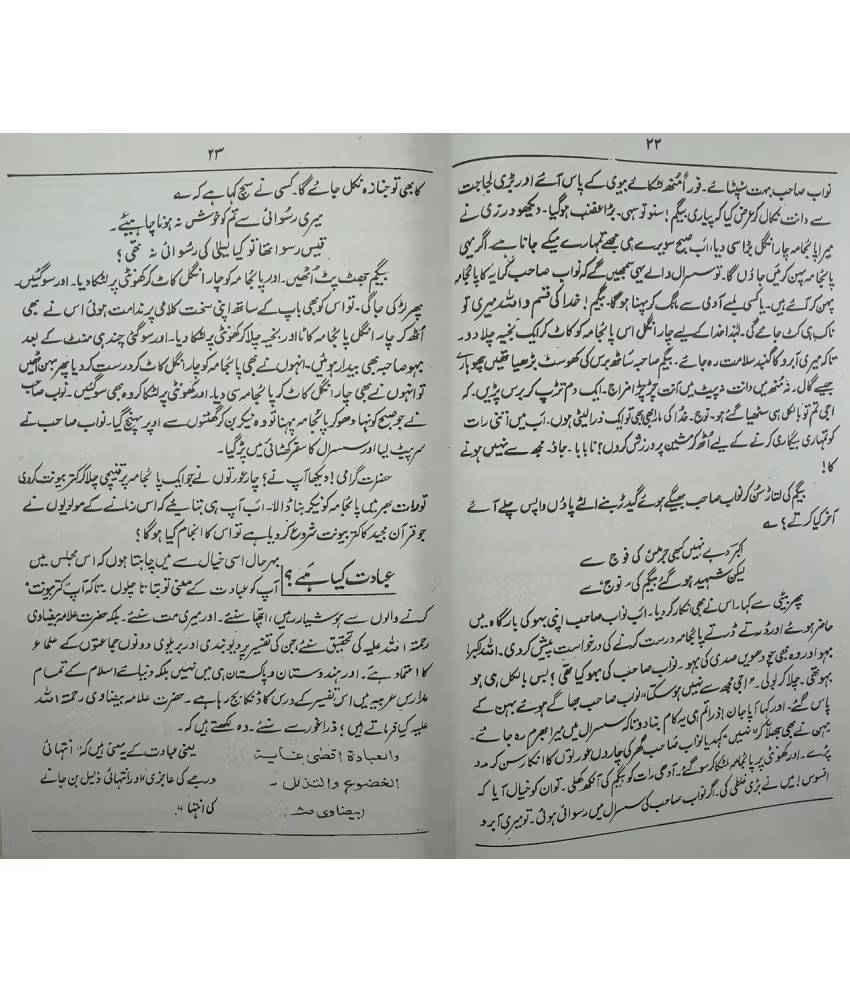 ۲۲
نواب صاحب بہت سٹپٹائے۔ فوراً منھ لٹکائے بیوی کے پاس آئے اور بڑی لجاجت
سے دانت نکال کر عرض کیا کہ پیاری بیگم! سنو تو سہی۔ بڑا غضب ہوگیا۔ دیکھو درزی نے
میرا پائجامہ چار انگل بڑا سی دیا، اب صبح سویرے ہی مجھے تمہارے میکے جانا ہے اگر یہی
پائجامہ پہن کر میں جاؤں گا۔ تو سسرال والے یہی سمجھیں گے کہ نواب صاحب کرایہ کا پائجامہ
پہن کر آئے ہیں۔ یا کسی لمبے آدمی سے مانگ کر پہنا ہوگا۔ بیگم! خدا کی قسم واللہ میری تو
ناک ہی کٹ جائے گی۔ لہٰذا خدا کے لیے چار انگل اس پائجامہ کو کاٹ کر ایک بخیہ چلا دو۔
تاکہ میری آبرو کا گنبد سلامت رہ جائے۔ بیگم صاحبہ ساٹھ برس کی کھوسٹ بڑھیا تھیں چھوہارے
جیسے گال۔ نہ منھ میں دانت نہ پیٹ میں آنت چڑچڑا مزاج۔ ایک دم تڑپ کر برس پڑیں۔ کہ
اجی تم تو بالکل ہی سٹھیا گئے ہو۔ نوج۔ خدا کی مار بھی تو ایک ذرا لیٹی ہوں۔ اب میں اتنی رات
کو تمہاری بیگاری کرنے کے لیے اٹھ کر مشین پر ورزش کروں؟ نا بابا۔ جاؤ۔ مجھ سے نہیں ہونے
کا!
بیگم کی لتاڑ سن کر نواب صاحب بھیگے ہوئے گیدڑ بنے الٹے پاؤں واپس چلے آئے
آخر کیا کرتے؟ ؎
اکبر دبے نہیں کبھی جرمن کی فوج سے
لیکن شہید ہوگئے بیگم کی "نوج" سے
پھر بیٹی سے کہا۔ اس نے بھی انکار کر دیا۔ اب نواب صاحب اپنی بہو کی بارگاہ میں
حاضر ہوئے اور ڈرتے ڈرتے پائجامہ درست کرنے کی درخواست پیش کر دی۔ اللہ اکبر!
بہو اور وہ بھی چودھویں صدی کی بہو۔ نواب صاحب کی بہو کیا تھی؟ بس بالکل ہی ہو
بہو تھی۔ چلا کر بولی۔ "اجی مجھ سے نہیں ہو سکتا" نواب صاحب بھاگے ہوئے بہن کے
پاس گئے۔ اور کہا آپا جان! ذرا تم ہی یہ کام بنا دو تاکہ سسرال میں میرا بھرم رہ جائے۔
بہن نے بھی جھلا کر "نہیں" کہہ دیا نواب صاحب گھر کی چاروں عورتوں کا انکار سن کر رو
پڑے۔ اور کھونٹی پر پائجامہ لٹکا کر سو گئے۔ آدھی رات کو بیگم کی آنکھ کھلی۔ تو ان کو خیال آیا کہ
افسوس! میں نے بڑی غلطی کی۔ اگر نواب صاحب کی سسرال میں رسوائی ہوئی۔ تو میری آبرو
۲۳
کا بھی تو جنازہ نکل جائے گا۔ کسی نے سچ کہا ہے کہ ؎
میری رسوائی سے تم کو خوش نہ ہونا چاہیئے۔
قیس رسوا تھا تو کیا لیلیٰ کی رسوائی نہ تھی؟
بیگم جھٹ پٹ اٹھیں۔ اور پائجامہ کو چار انگل کاٹ کر کھونٹی پر لٹکا دیا۔ اور سو گئیں۔
پھر لڑکی جاگی۔ تو اس کو بھی باپ کے ساتھ اپنی سخت کلامی پر ندامت ہوئی اس نے بھی
اٹھ کر چار انگل پائجامہ کاٹا اور بخیہ چلا کر کھونٹی پر لٹکا دیا۔ اور سو گئی چند ہی منٹ کے بعد
بہو صاحبہ بھی بیدار ہوئیں۔ انہوں نے بھی پائجامہ کو چار انگل کاٹ کر درست کر دیا پھر بہن اٹھیں
تو انہوں نے بھی چار انگل کاٹ کر پائجامہ سی دیا۔ اور کھونٹی پر لٹکا کر وہ بھی سو گئیں۔ نواب صاحب
نے جو صبح کو نہا دھو کر پائجامہ پہنا تو وہ نیکر بن کر گھٹنوں سے اوپر پہنچ گیا۔ نواب صاحب نے
سر پیٹ لیا اور سسرال کا سفر کھٹائی میں پڑ گیا۔
حضرات گرامی! دیکھا آپ نے؟ چار عورتوں نے جو ایک پائجامہ پر قینچی چلا کر کتر بیونت کر دی
تو رات بھر میں پائجامہ کو نیکر بنا ڈالا۔ اب آپ ہی بتایئے کہ اس زمانے کے مولویوں نے
جو قرآن مجید کا کتر بیونت شروع کر دیا ہے تو اس کا انجام کیا ہوگا؟
عبادت کیا ہے؟
بہر حال اسی خیال سے میں چاہتا ہوں کہ اس مجلس میں
آپ کو عبادت کے معنی تو بتاتا چلوں۔ تاکہ آپ کتر بیونت
کرنے والوں سے ہوشیار رہیں، اچھا سنئے۔ اور میری مت سنئے۔ بلکہ حضرت علامہ بیضاوی
رحمتہ اللہ علیہ کی تحقیق سنئے، جن کی تفسیر پر دیوبندی اور بریلوی دونوں جماعتوں کے علماء
کا اعتماد ہے۔ اور ہندوستان و پاکستان ہی میں نہیں بلکہ دنیائے اسلام کے تمام
مدارس عربیہ میں اس تفسیر کے درس کا ڈنکا بج رہا ہے۔ حضرت علامہ بیضاوی رحمتہ اللہ
علیہ کیا فرماتے ہیں؟ ذرا غور سے سنئے۔ وہ لکھتے ہیں کہ۔
والعبادة اقصٰی غایة
الخضوع والتذلل ـ
(بیضاوی
یعنی عبادت کے یہ معنی ہیں کہ "انتہائی
درجے کی عاجزی اور انتہائی ذلیل بن جانے
کی انتہا"۔